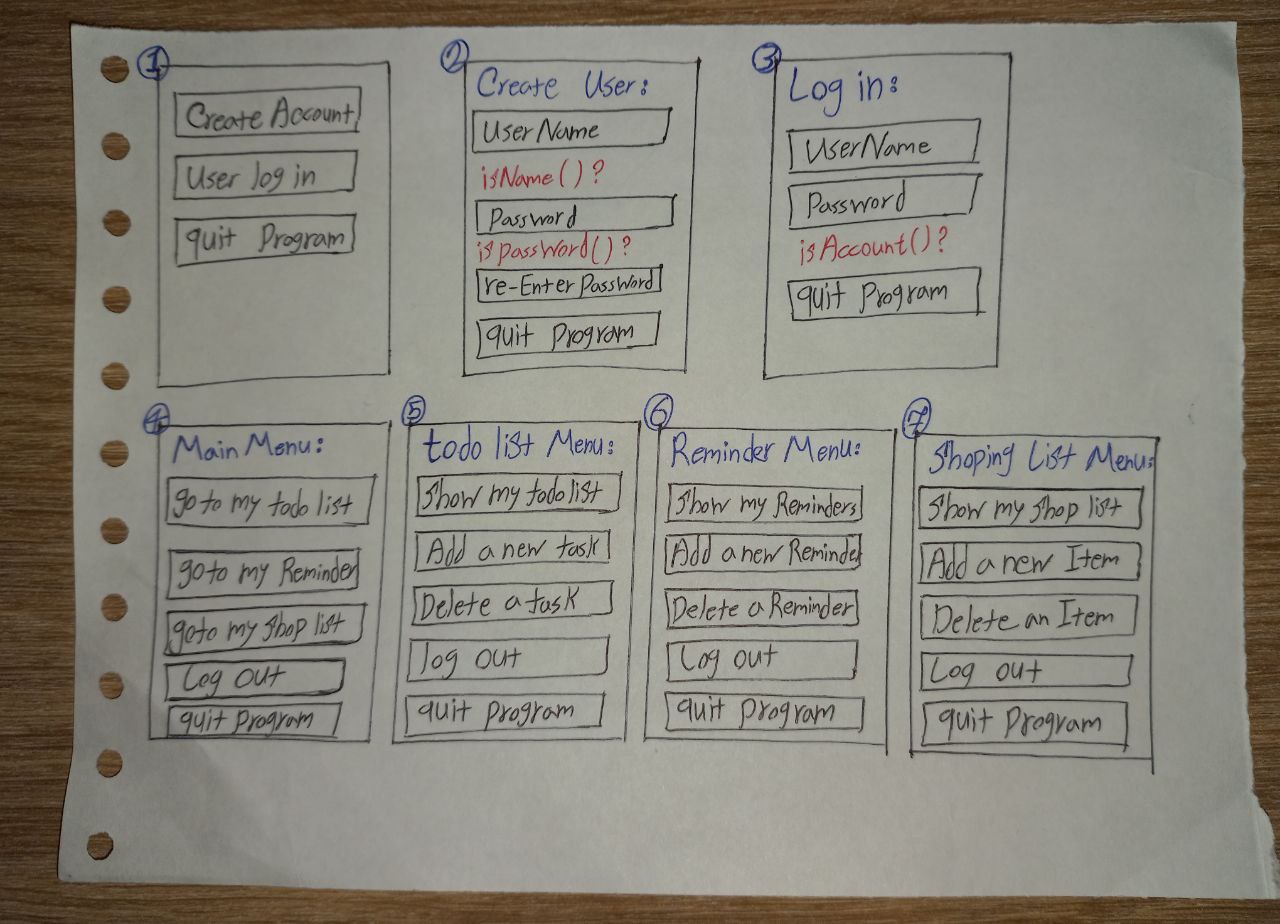 1
Create Account
User log in
quit Program
2
Create User:
UserName
isName()?
Password
isPassword()?
re-Enter Password
quit Program
3
Log in:
UserName
Password
isAccount()?
quit Program
4
Main Menu:
go to my todo list
goto my Reminder
goto my shop list
Log out
quit Program
5
todo list Menu:
show my todo list
Add a new task
Delete a task
log out
quit program
6
Reminder Menu:
show my Reminders
Add a new Reminder
Delete a Reminder
Log out
quit Program
7
Shoping List Menu:
show my shop list
Add a new Item
Delete an Item
Log out
quit Program